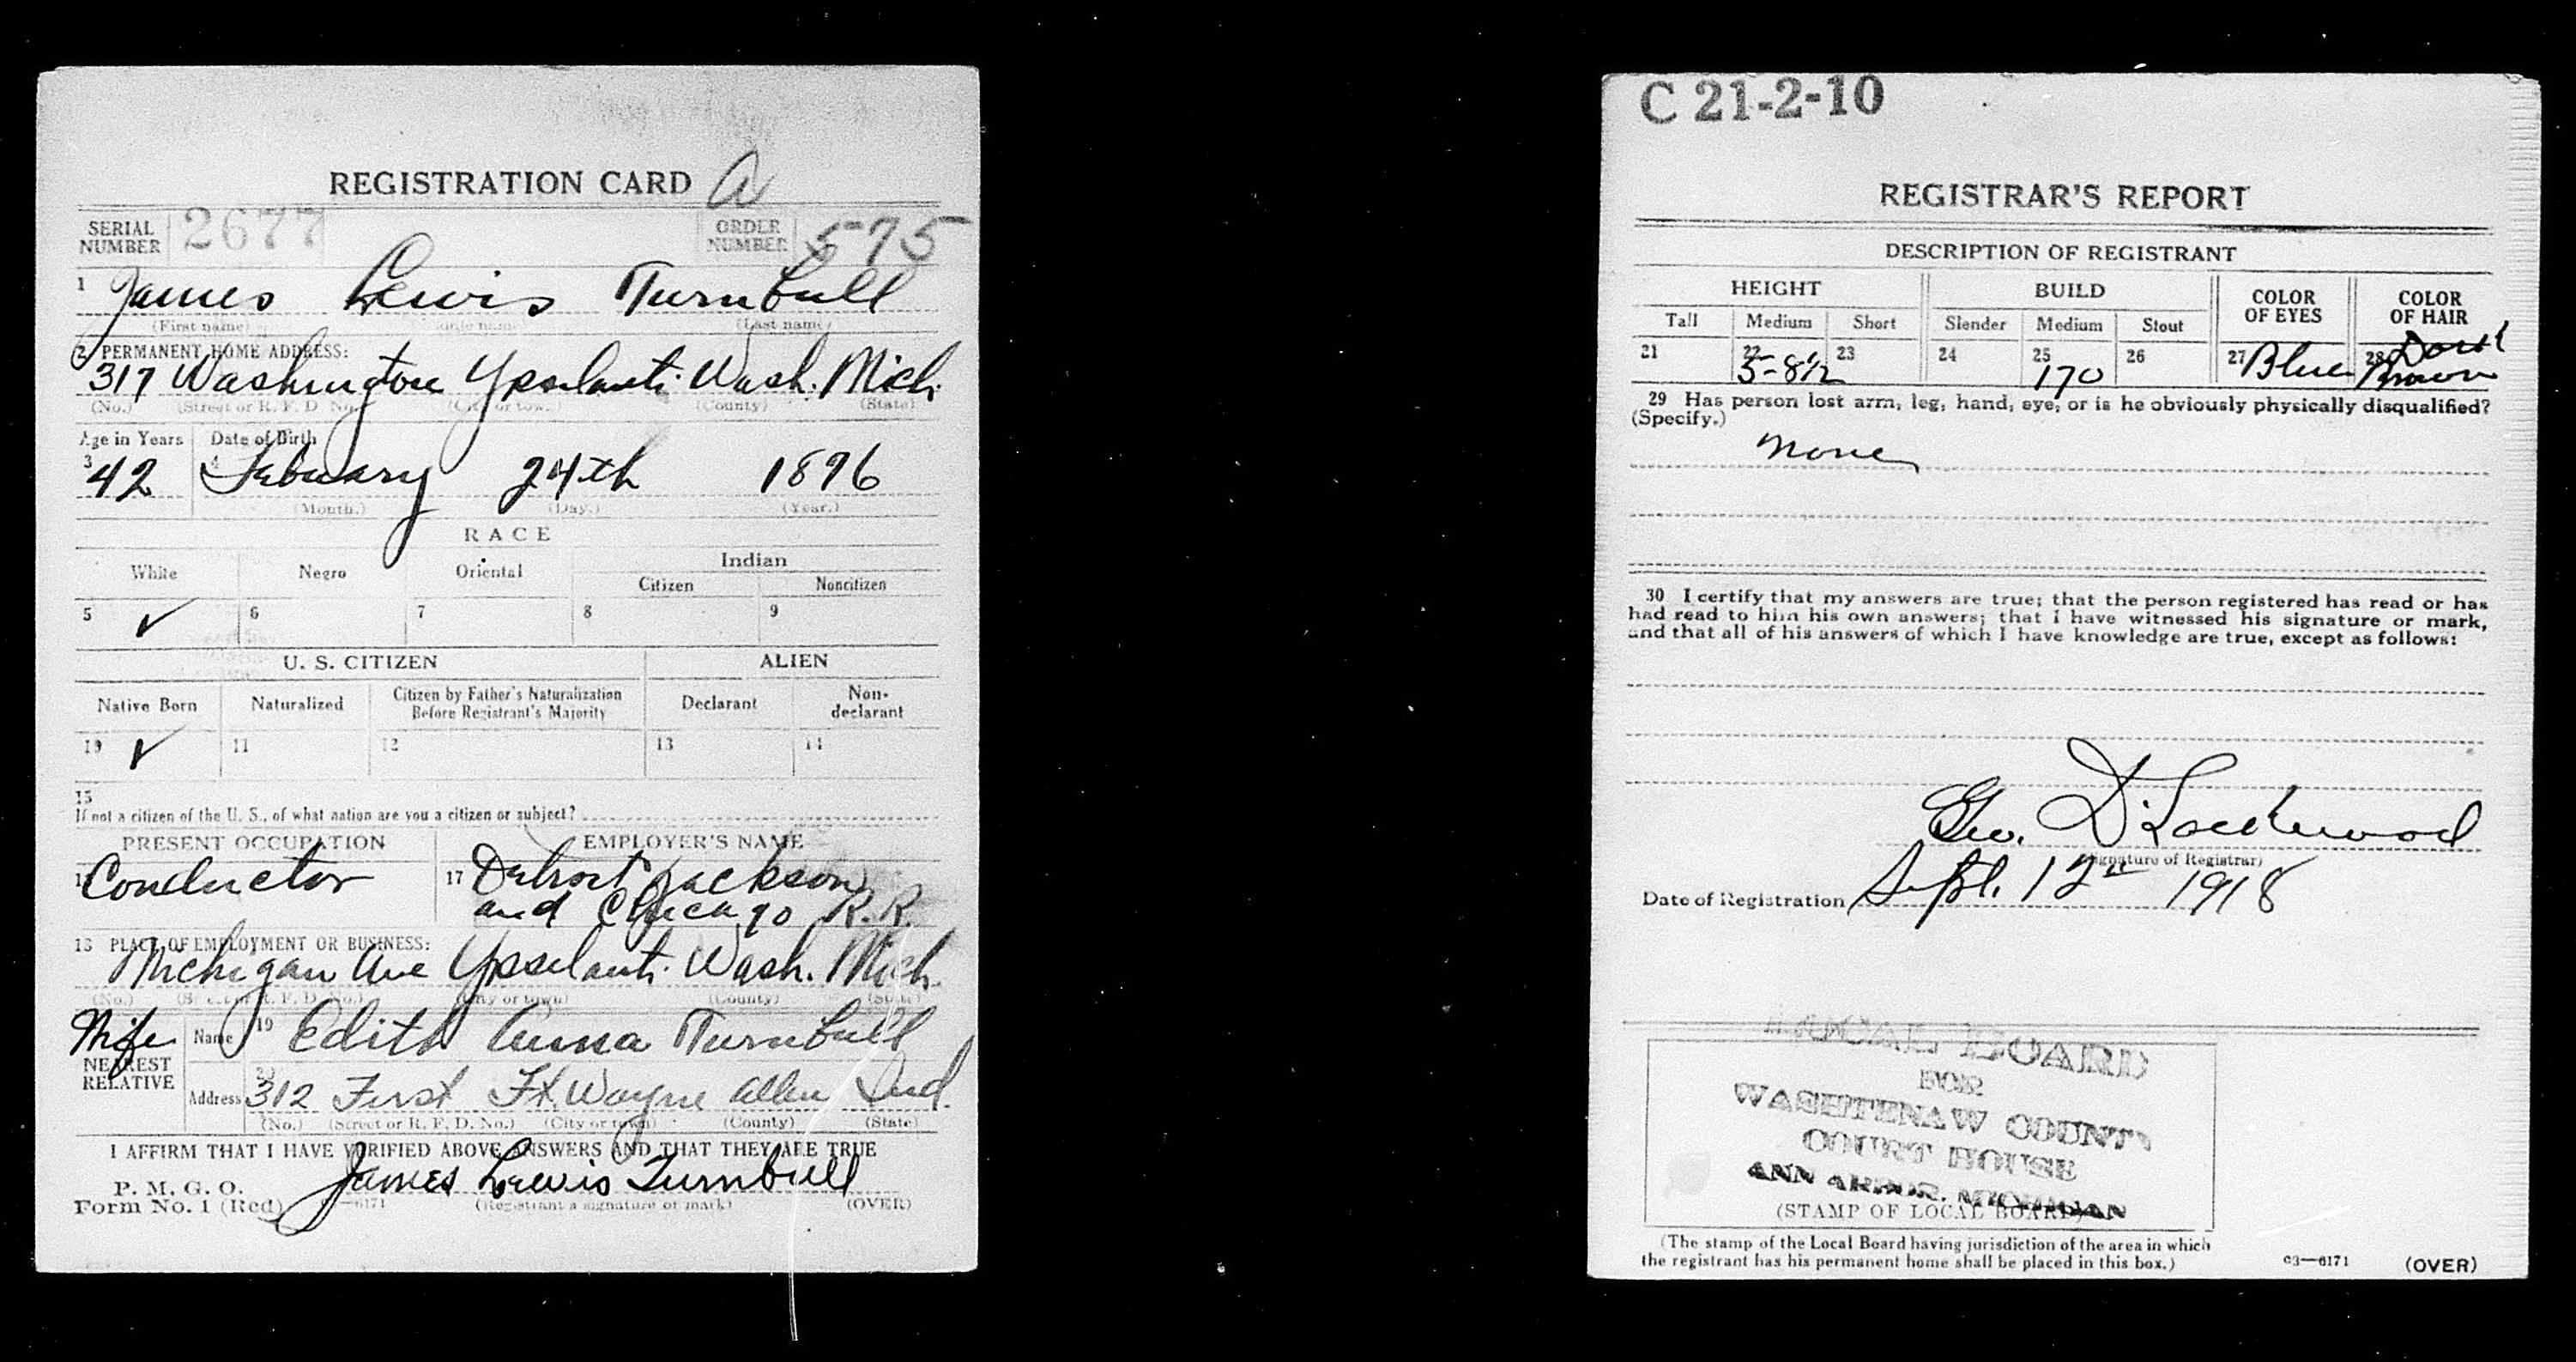 REGISTRATION CARD A
SERIAL NUMBER 2677 ORDER NUMBER 575
1 James Lewis Turnbull
(First name) (Last name)
2 PERMANENT HOME ADDRESS:
317 Washington Ypsilanti Wash. Mich.
(No.) (Street or R. F. D. No.) (City or town) (County) (State)
Age in Years Date of Birth
3 42 Febuary 24th 1876
(Month.) (Day.) (Year.)
RACE
White Negro Oriental Indian
Citizen Noncitizen
5 ✓ 6 7 8 9
U. S. CITIZEN ALIEN
Native Born Naturalized Citizen by Father's Naturalization Before Registrant's Majority Declarant Non-declarant
10 ✓ 11 12 13 14
15
If not a citizen of the U. S., of what nation are you a citizen or subject?
PRESENT OCCUPATION EMPLOYER'S NAME
Conductor 17 Detroit Jackson
and Chicago R.R.
18 PLACE OF EMPLOYMENT OR BUSINESS:
Michigan Ave Ypsilanti Wash. Mich.
(No.) (Street or R. F. D. No.) (City or town) (County) (State)
Wife Name 19 Edith Anna Turnbull
NEAREST RELATIVE
Address 312 First Ft. Wayne Allen Ind.
(No.) (Street or R. F. D. No.) (City or town) (County) (State)
I AFFIRM THAT I HAVE VERIFIED ABOVE ANSWERS AND THAT THEY ARE TRUE
James Lewis Turnbull
P. M. G. O.
Form No. 1 (Red) 6171 (Registrant's signature or mark) (OVER)
C 21-2-10
REGISTRAR'S REPORT
DESCRIPTION OF REGISTRANT
HEIGHT BUILD COLOR OF EYES COLOR OF HAIR
Tall Medium Short Slender Medium Stout
21 22 5-8½ 23 24 25 170 26 27 Blue 28 Dark Brown
29 Has person lost arm, leg, hand, eye, or is he obviously physically disqualified?
(Specify.)
None
30 I certify that my answers are true; that the person registered has read or has
had read to him his own answers; that I have witnessed his signature or mark,
and that all of his answers of which I have knowledge are true, except as follows:
Geo. D. Lockwood
(Signature of Registrar)
Date of Registration Sept. 12th 1918
LOCAL BOARD
FOR
WASHTENAW COUNTY
COURT HOUSE
ANN ARBOR, MICHIGAN
(STAMP OF LOCAL BOARD)
(The stamp of the Local Board having jurisdiction of the area in which
the registrant has his permanent home shall be placed in this box.)
03—6171 (OVER)